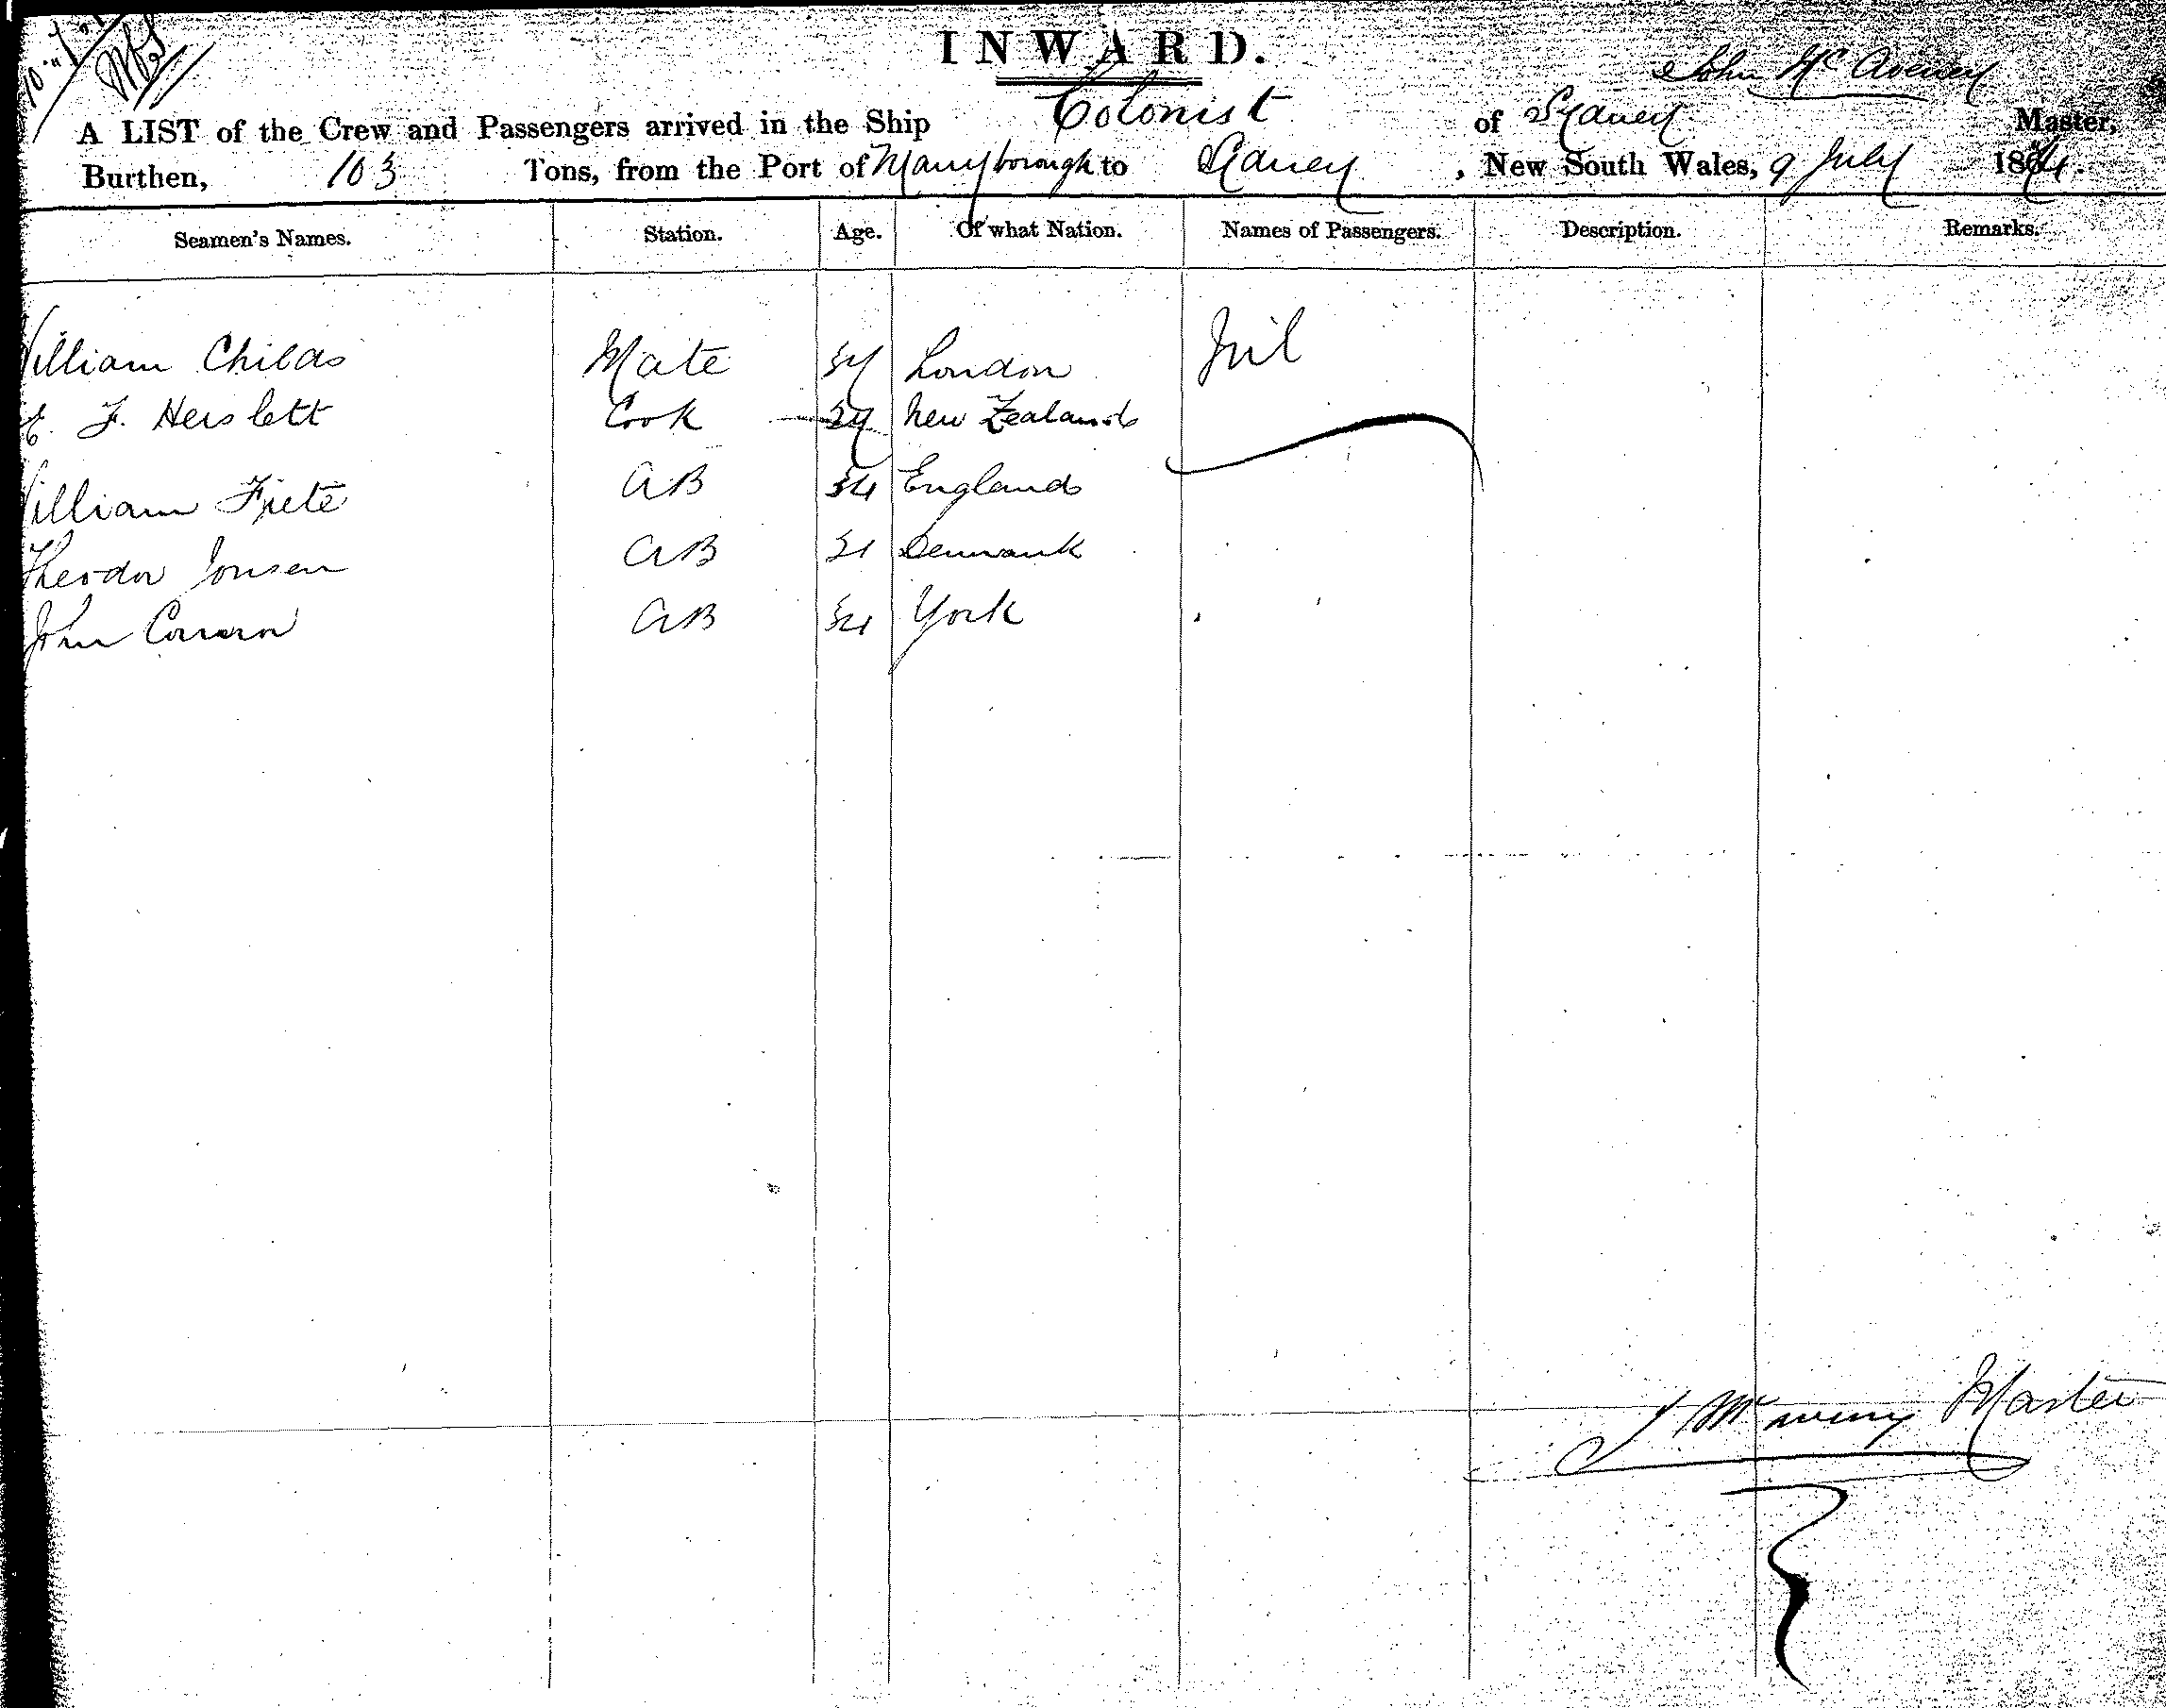 INWARD.
John McAveney
A LIST of the Crew and Passengers arrived in the Ship Colonist of Sydney Master,
Burthen, 103 Tons, from the Port of Maryborough to Sydney, New South Wales, 9 July 18
Seamen's Names. Station. Age. Of what Nation. Names of Passengers. Description. Remarks.
William Childs Mate London Nil
E. F. Herslett Cook New Zealand
William AB 34 England
Theodor Jonsen AB 31 Denmark
John AB 34 York
J McAveney Master